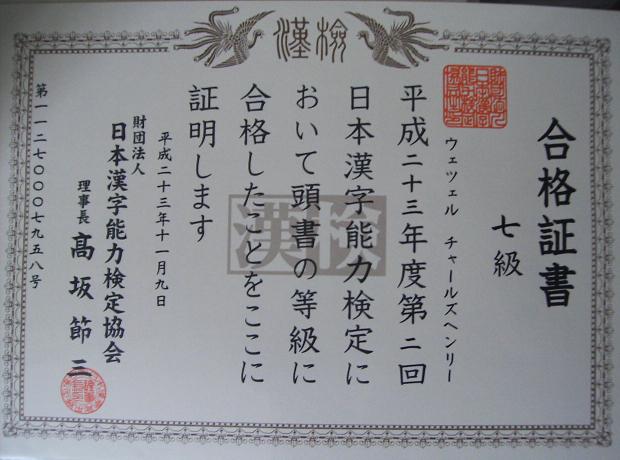 漢検
合格証書
七級
ウェッツェル チャールズヘンリー
平成二十三年度第二回
日本漢字能力検定に
おいて頭書の等級に
合格したことをここに
証明します
平成二十三年十一月九日
財団法人
日本漢字能力検定協会
理事長 髙坂節三
第一一二七〇〇〇七九五八号
漢検